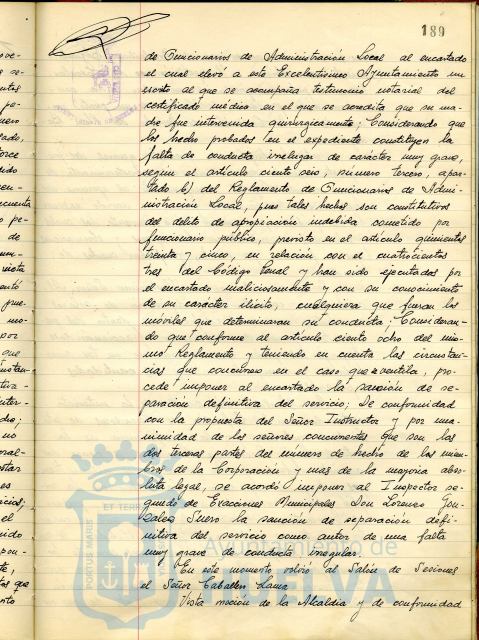 189
de Funcionarios de Administración Local al encartado
el cual elevó a este Excelentísimo Ayuntamiento un
escrito al que se acompaña testimonio notarial del
certificado médico en el que se acredita que su ma-
dre fue intervenida quirurgicamente; Considerando que
los hecho probados en el expediente constituyen la
falta de conducta irregular de carácter muy grave,
según el artículo ciento seis, número tercero, apar-
tado b) del Reglamento de Funcionarios de Admi-
nistración Local, pues tales hechos son constitutivos
del delito de apropiación indebida cometido por
funcionario público, previsto en el artículo quinientos
treinta y cinco, en relación con el cuatrocientos
tres del Código Penal y han sido ejecutados por
el encartado maliciosamente y con su conocimiento
de su carácter ilícito, cualquiera que fueran los
móviles que determinaran su conducta; Consideran-
do que conforme al artículo ciento ocho del mis-
mo Reglamento y teniendo en cuenta las circunstan-
cias que concurren en el caso que se ventila, pro-
cede imponer al encartado la sanción de se-
paración definitiva del servicio; De conformidad
con la propuesta del Señor Instructor y por una-
nimidad de los señores concurrentes que son las
dos terceras partes del número de hecho de los miem-
bros de la Corporación y mas de la mayoría abso-
luta legal, se acordó imponer al Inspector se-
gundo de Exacciones Municipales Don Lorenzo Gon-
zález Suero la sanción de separación defi-
nitiva del servicio como autor de una falta
muy grave de conducta irregular.
En este momento volvió al Salón de Sesiones
el Señor Caballero
Vista moción de la Alcaldía y de conformidad
PORTUS MARIS
ET TERR
Ayuntamiento de
HUELVA